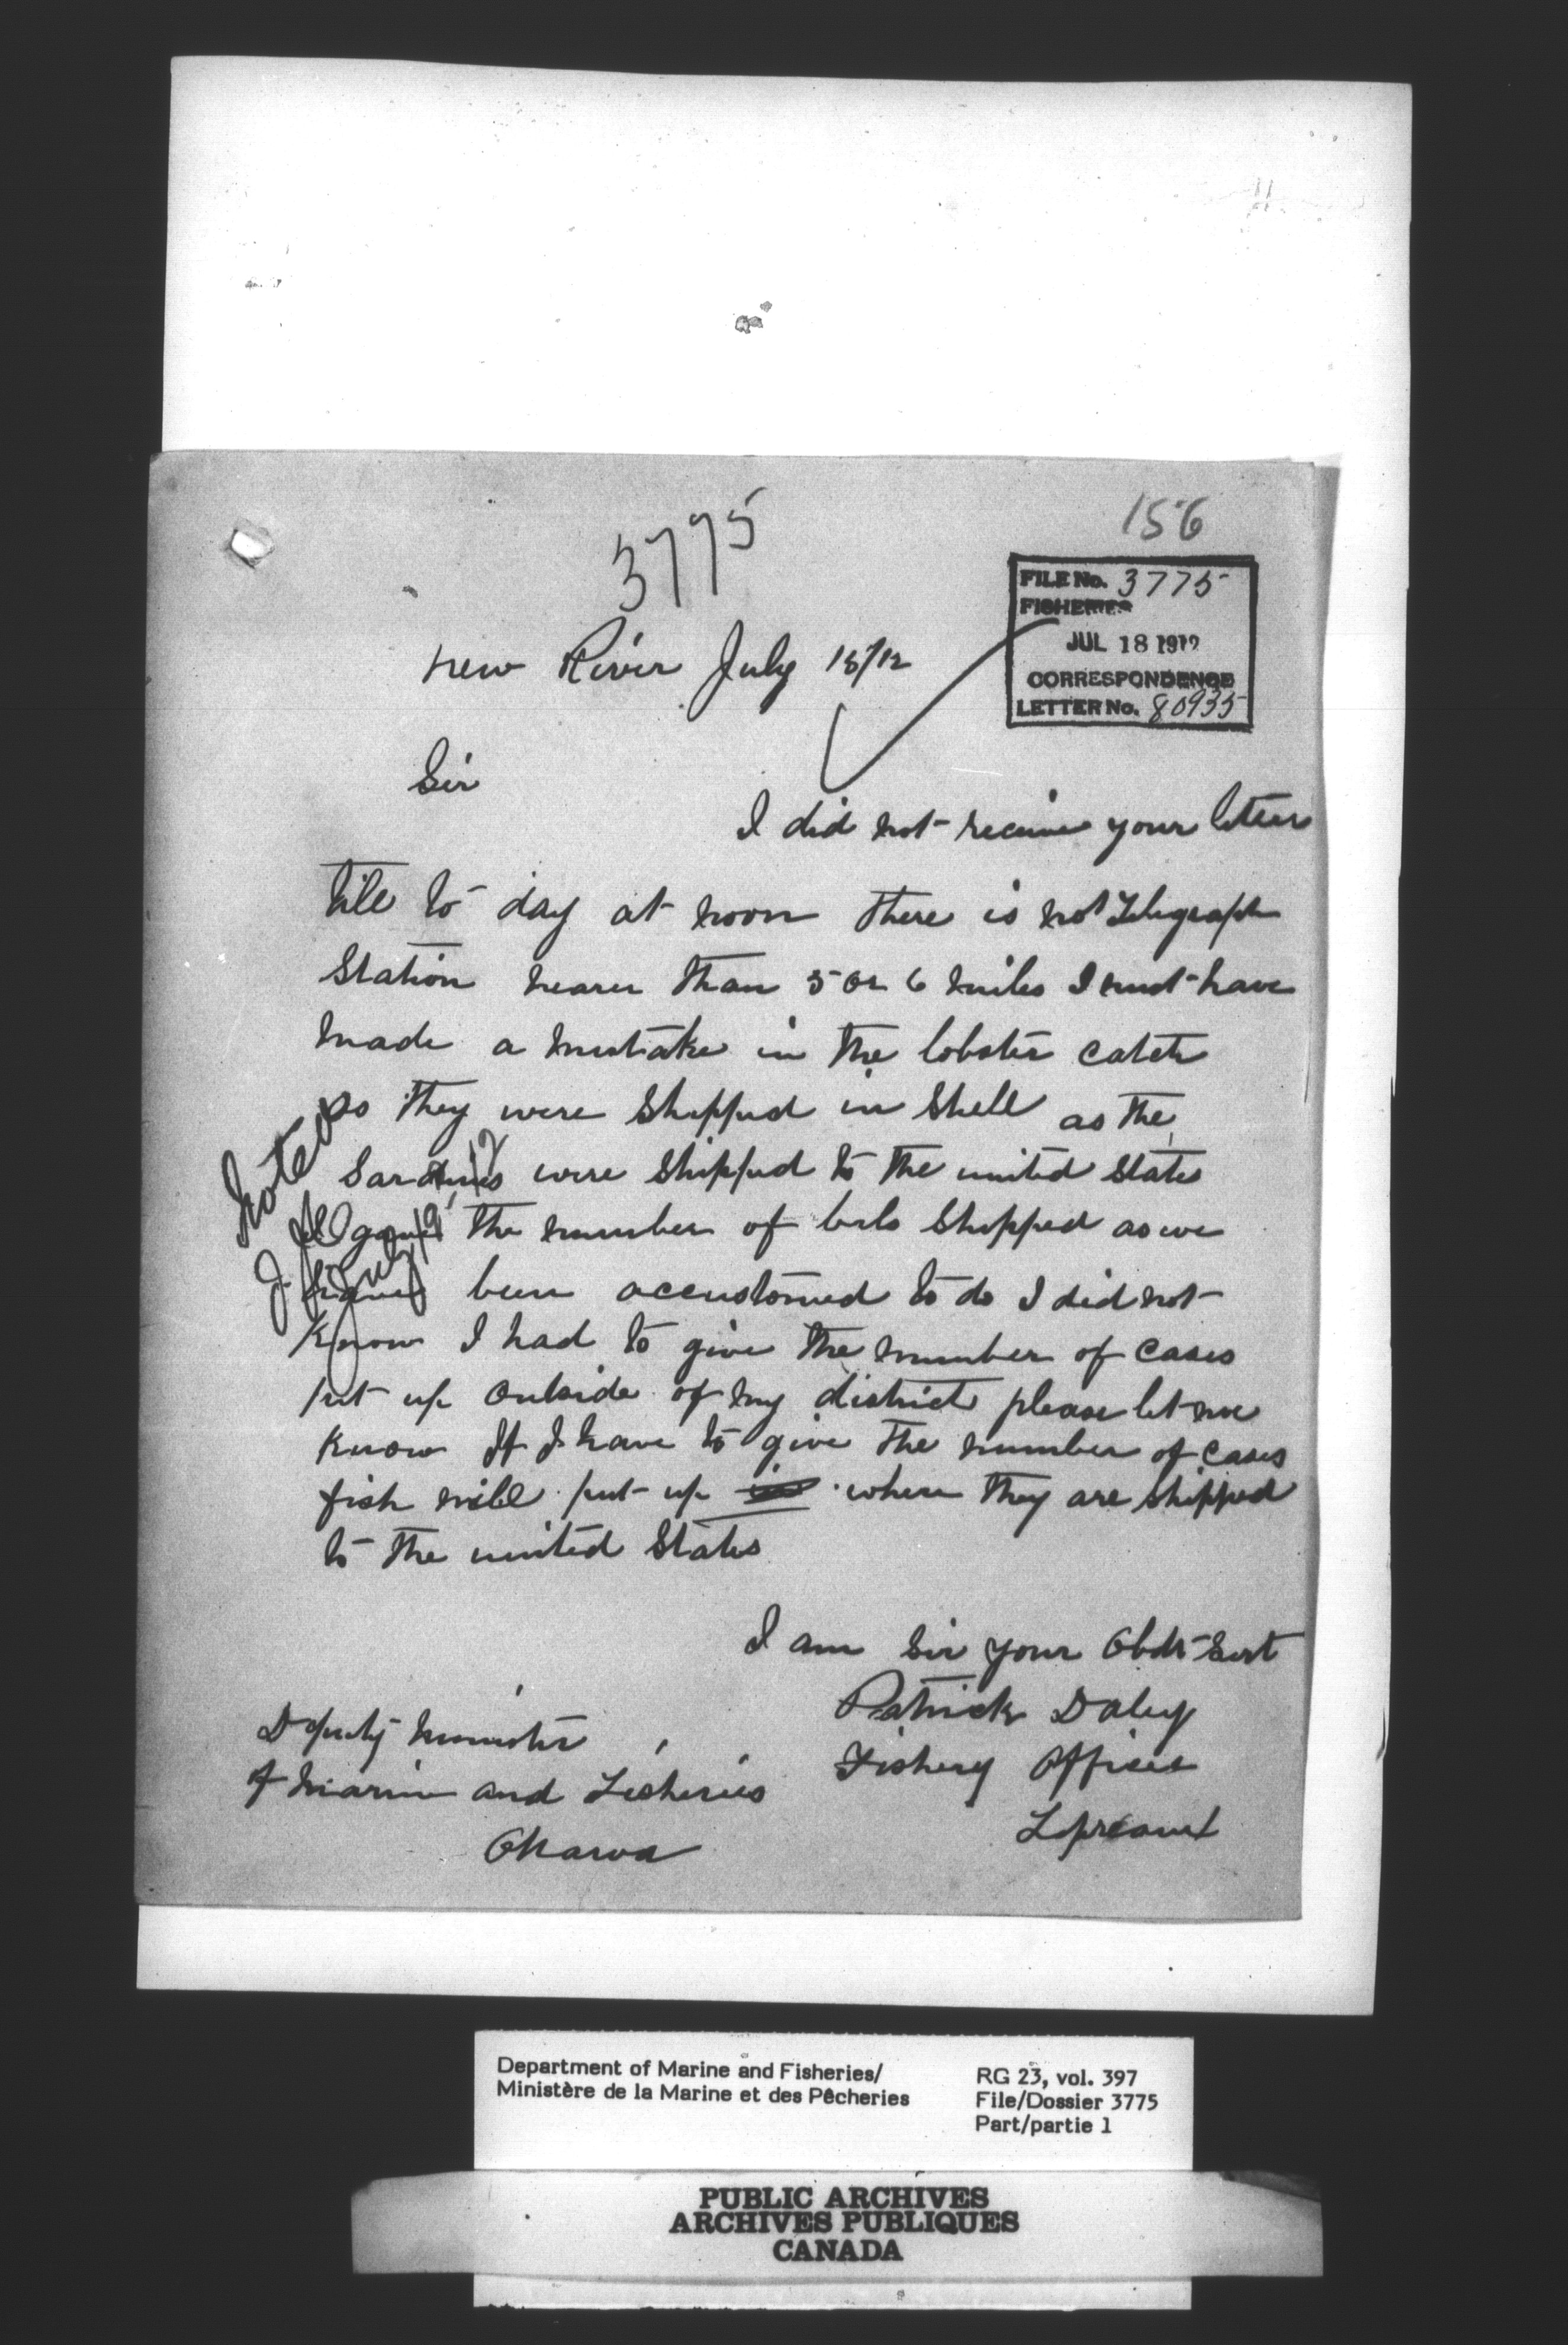 156
3775
FILE No. 3775
FISHERIES
JUL 18 1912
CORRESPONDENCE
LETTER No. 80935
New River July 15/12
Sir
I did not receive your letter
till to day at noon there is not Telegraph
Station nearer than 5 or 6 miles I must have
made a mistake in the lobster catch
as they were Shipped in Shell as the
Sardines were Shipped to the united States
I gave the number of brls Shipped as we
have been accustomed to do I did not
Know I had to give the number of cases
put up outside of my district please let me
Know If I have to give the number of cases
fish will put up where they are shipped
to the united States
I am Sir your Obdt Servt
Patrick Daley
Fishery Officer
Lepreau
Deputy Minister
of Marine and Fisheries
Ottawa
Noted
July 19/12
Department of Marine and Fisheries/
Ministère de la Marine et des Pêcheries
RG 23, vol. 397
File/Dossier 3775
Part/partie 1
PUBLIC ARCHIVES
ARCHIVES PUBLIQUES
CANADA